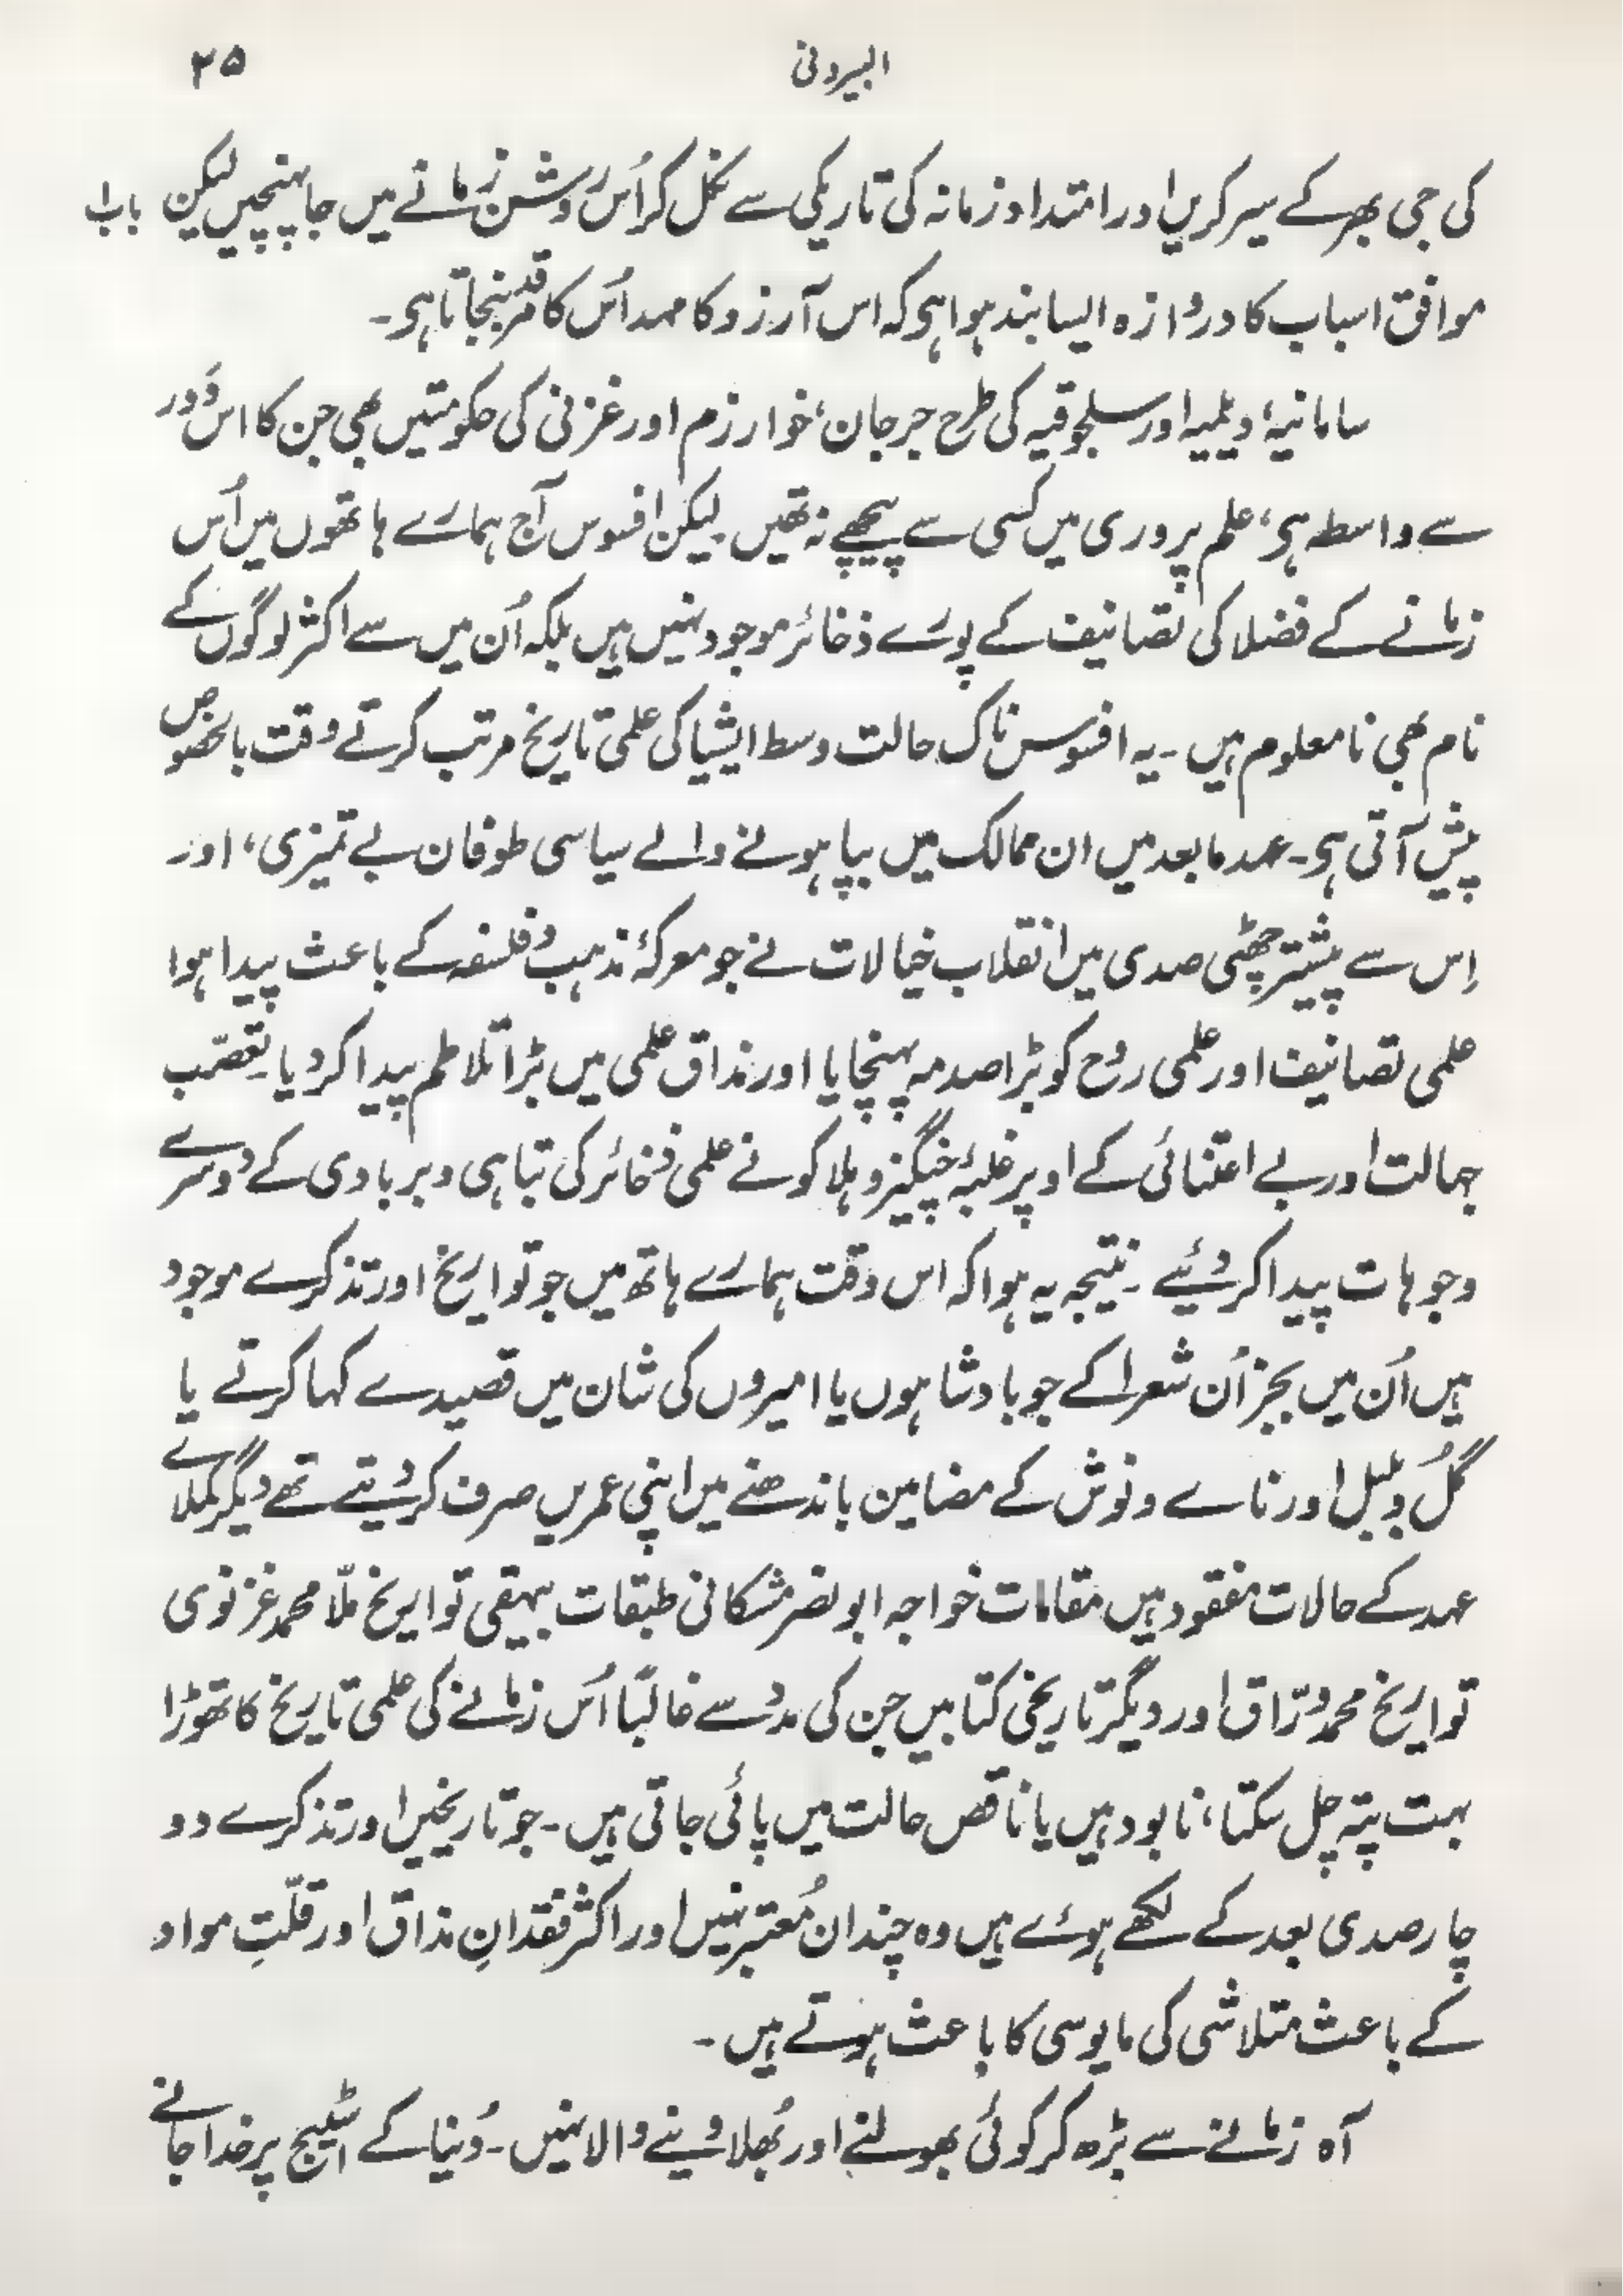 البیرونی ۲۵
کی جی بھر کے سیر کریں اور امتداد زمانہ کی تاریکی سے نکل کر اُس روشن زمانے میں جا پہنچیں لیکن باب۱
موافق اسباب کا دروازہ ایسا بند ہوا ہی کہ اس آرزو کا مہد اُس کا مرقد بنجاتا ہی۔
سامانیہ، ویلمیہ اور سلجوقیہ کی طرح جرجان، خوارزم اور غزنی کی حکومتیں بھی جن کا اس دَور
سے واسطہ ہی، علم پروری میں کسی سے پیچھے نہ تھیں لیکن افسوس آج ہمارے ہاتھوں میں اُس
زمانے کے فضلا کی تصانیف کے پورے ذخائر موجود نہیں ہیں بلکہ اُن میں سے اکثر لوگوں کے
نام بھی نامعلوم ہیں۔ یہ افسوس ناک حالت وسط ایشیا کی علمی تاریخ مرتب کرتے وقت بالخصوص
پیش آتی ہی۔ عہد مابعد میں ان ممالک میں بپا ہونے والے سیاسی طوفان بے تمیزی، اور
اِس سے پیشتر چھٹی صدی میں انقلاب خیالات نے جو معرکۂ مذہب و فلسفہ کے باعث پیدا ہوا
علمی تصانیف اور علمی رُوح کو بڑا صدمہ پہنچایا اور مذاق علمی میں بڑا تلاطم پیدا کر دیا۔ تعصّب
جہالت اور بے اعتنائی کے اوپر غلبۂ چنگیز و ہلاکو نے علمی ذخائر کی تباہی و بربادی کے دوسرے
وجوہات پیدا کر دئیے۔ نتیجہ یہ ہوا کہ اس وقت ہمارے ہاتھ میں جو تواریخ اور تذکرے موجود
ہیں اُن میں بجز اُن شعرا کے جو بادشاہوں یا امیروں کی شان میں قصیدے کہا کرتے یا
گُل و بلبل اور نائے و نوش کے مضامین باندھنے میں اپنی عمریں صرف کر دیتے تھے دیگر کملائے
عہد کے حالات مفقود ہیں مقامات خواجہ ابو نصر مشکانی طبقات بیہقی تواریخ ملّا محمد غزنوی
تواریخ محمد ورّاق اور دیگر تاریخی کتابیں جن کی مدد سے غالبًا اُس زمانے کی علمی تاریخ کا تھوڑا
بہت پتہ چل سکتا، نابود ہیں یا ناقص حالت میں پائی جاتی ہیں۔ جو تاریخیں اور تذکرے دو
چار صدی بعد کے لکھے ہوئے ہیں وہ چنداں مُعتبر نہیں اور اکثر فقدانِ مذاق اور قلّتِ مواد
کے باعث متلاشی کی مایوسی کا باعث ہوتے ہیں۔
آہ زمانے سے بڑھ کر کوئی بھولنے اور بُھلا دینے والا نہیں۔ دُنیا کے اسٹیج پر خدا جانے